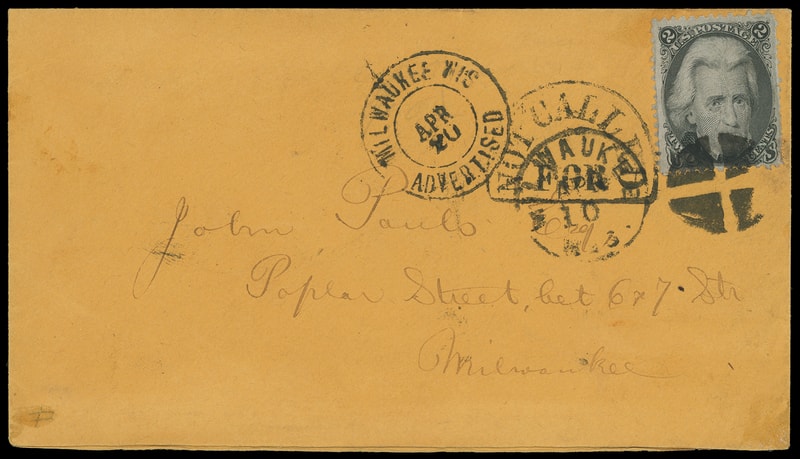 U.S. POSTAGE
2 2
TWO CENTS
MILWAUKEE WIS
APR
20
ADVERTISED
NOT CALLED
FOR
MILWAUKEE
APR
10
WIS
John Pauls
Poplar Street, bet 6 & 7 Str
Milwaukee